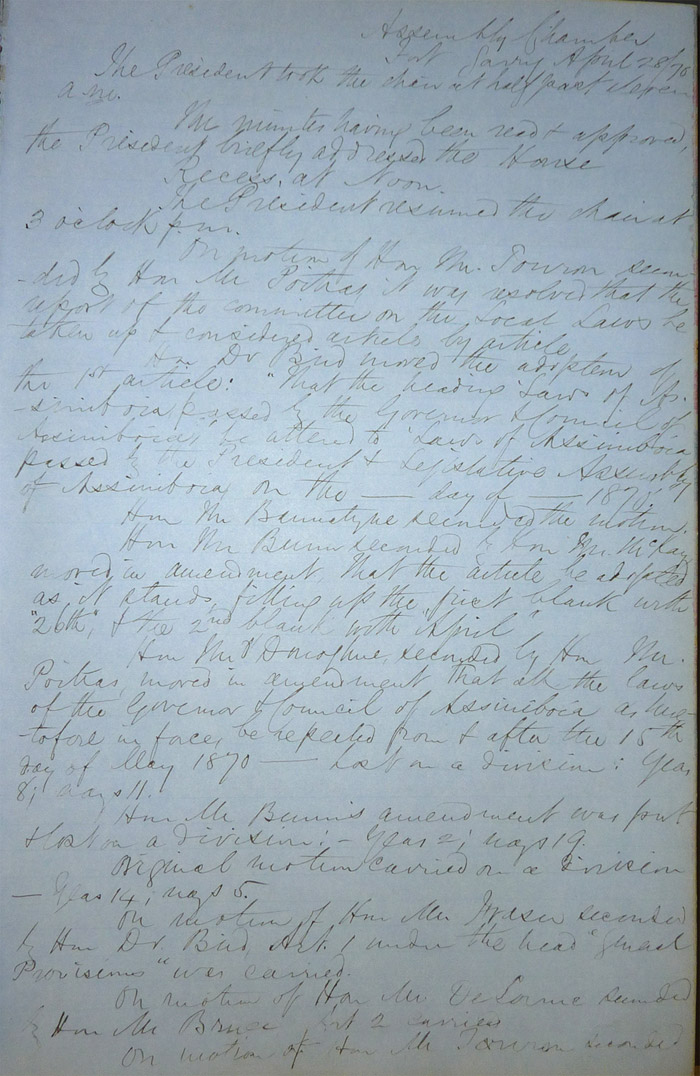 Assembly Chamber
Fort Garry April 28/70
The President took the chair at half past eleven
a.m.
The minutes having been read & approved,
the President briefly addressed the House
Recess at Noon.
The President resumed the chair at
3 o'clock p.m.
On motion of Hon Mr. Touron secon
-ded by Hon Mr Poitras it was resolved that the
report of the committee on the Local Laws be
taken up & considered article by article
Hon Dr Bird moved the adoption of
the 1st article: "That the heading 'Laws of As-
-siniboia passed by the Governor & Council of
Assiniboia' be altered to 'Laws of Assiniboia
passed by the President & Legislative Assembly
of Assiniboia on the — day of — 1870.'"
Hon Mr Bannatyne seconded the motion.
Hon Mr Bunn seconded by Hon Mr. McKay
moved in amendment, That the article be adopted
as it stands, filling up the first blank with
"26th", & the 2nd blank with April"
Hon Mr O'Donoghue, seconded by Hon Mr.
Poitras, moved in amendment, that all the laws
of the Governor & Council of Assiniboia as here-
-tofore in force, be repealed from & after the 15th
day of May 1870 — Lost on a division: Yeas
8; nays 11.
Hon Mr Bunn's amendment was put
& lost on a division: – Yeas 2; nays 19.
Original motion carried on a division
— Yeas 14; nays 5.
On motion of Hon Mr Fraser seconded
by Hon Dr. Bird, Art. 1 under the head "General
Provisions" was carried.
On motion of Hon Mr DeLorme seconded
by Hon Mr Bruce Art 2 carried
On motion of Hon Mr Touron seconded